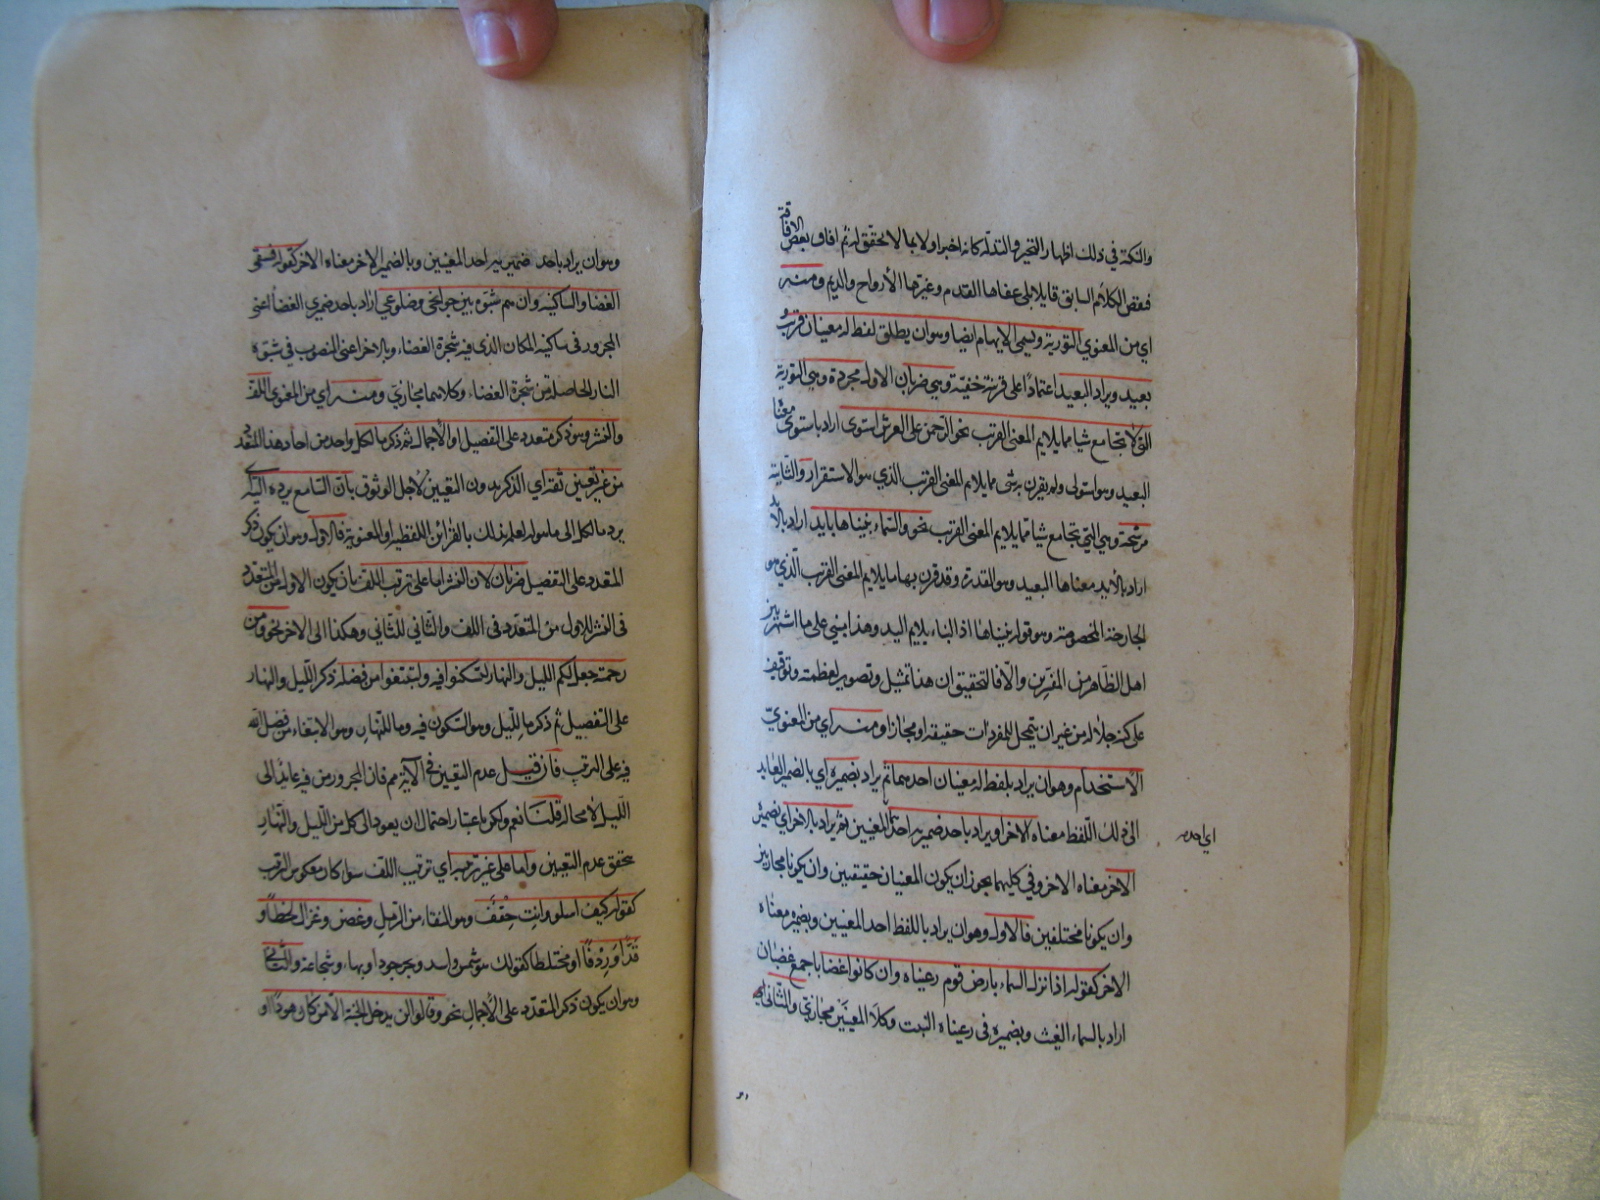 والنكتة في ذلك اظهار التحير والتدله كانه اخبر اولا بما لا تحقق له ثم افاق بعض الافاقة
فنقض الكلام السابق قايلا بلى عفاها القدم وغيرها الأرواح والديم ومنه
اي من المعنوي التورية ويسمى الايهام ايضا وهو ان يطلق لفظ له معنيان قريب و
بعيد ويراد البعيد اعتمادا على قرينة خفية وهي ضربان الاولى مجردة وهي التورية
التي لا تجامع شيا مما يلايم المعنى القريب نحو الرحمن على العرش استوى اراد باستوى معناه
البعيد وهو استولى ولم يقرن به شي مما يلايم المعنى القريب الذي هو الاستقرار والثانية
مرشحة وهي التي تجامع شيا مما يلايم المعنى القريب نحو والسماء بنيناها بايد اراد بالأيد
اراد بالأيد معناها البعيد وهو القدرة وقد قرن بها ما يلايم المعنى القريب الذي هو
الجارحة المخصوصة وهو قوله بنيناها اذ البناء يلايم اليد وهذا مبني على ما اشتهر بين
اهل الظاهر من المفسرين والا فالتحقيق ان هذا تمثيل وتصوير لعظمته وتوقيف
على كنه جلاله من غير ان يتمحل للمفردات حقيقة او مجازا ومنه اي من المعنوي
الاستخدام وهو ان يراد بلفظ له معنيان احدهما ثم يراد بضميره اي بالضمير العايد
الى ذلك اللفظ معناه الاخر او يراد باحد ضميريه احد المعنيين ثم يراد بالاخر اي بضميره
الاخر معناه الاخر وفي كليهما يجوز ان يكون المعنيان حقيقيين وان يكونا مجازيين
وان يكونا مختلفين فالاول وهو ان يراد باللفظ احد المعنيين وبضميره معناه
الاخر كقوله اذا نزل السماء بارض قوم رعيناه وان كانوا غضابا جمع غضبان
اراد بالسماء الغيث وبضميره في رعيناه النبت وكلا المعنيين مجازي والثاني
وهو ان يراد باحد ضميريه احد المعنيين وبالضمير الاخر معناه الاخر كقوله فسقى
الغضا والساكنيه وان هم شبوه بين جوانحي وضلوعي اراد باحد ضميري الغضا اعني
المجرور في ساكنيه المكان الذي فيه شجرة الغضاء وبالاخر اعني المنصوب في شبوه
النار الحاصلة من شجرة الغضاء وكلاهما مجازي ومنه اي من المعنوي اللف
والنشر وهو ذكر متعدد على التفصيل او الأجمال ثم ذكر ما لكل واحد من احاد هذا المتعدد
من غير تعيين ثقة اي الذكر بدون التعيين لاجل الوثوق بان السامع يرده اليه
يرد ما لكل الى ما هو له لعلمه بذلك بالقراين اللفظية او المعنوية فالاول وهو ان يكون ذكر
المتعدد على التفصيل ضربان لان النشر اما على ترتيب اللف بان يكون الاول من المتعدد
في النشر للاول من المتعدد في اللف والثاني للثاني وهكذا الى الاخر نحو ومن
رحمته جعل لكم الليل والنهار لتسكنوا فيه ولتبتغوا من فضله ذكر الليل والنهار
على التفصيل ثم ذكر ما لليل وهو السكون فيه وما للنهار وهو الابتغاء من فضل الله
فيه على الترتيب فان قيل عدم التعيين في الآية مم فان المجرور من فيه عايد الى
الليل لا محالة قلنا نعم ولكن باعتبار احتمال ان يعود الى كل من الليل والنهار
يتحقق عدم التعيين واما على غير ترتيبه اي ترتيب اللف سوا كان معكوس الترتيب
كقوله كيف اسلو وانت حقف وهو النقاء من الرمل وغصن وغزال لحظا و
قدا وردفا او مختلطا كقولك هو شمس واسد وبحر جودا وبهاء وشجاعة والثاني
وهو ان يكون ذكر المتعدد على الأجمال نحو وقالوا لن يدخل الجنة الا من كان هودا او